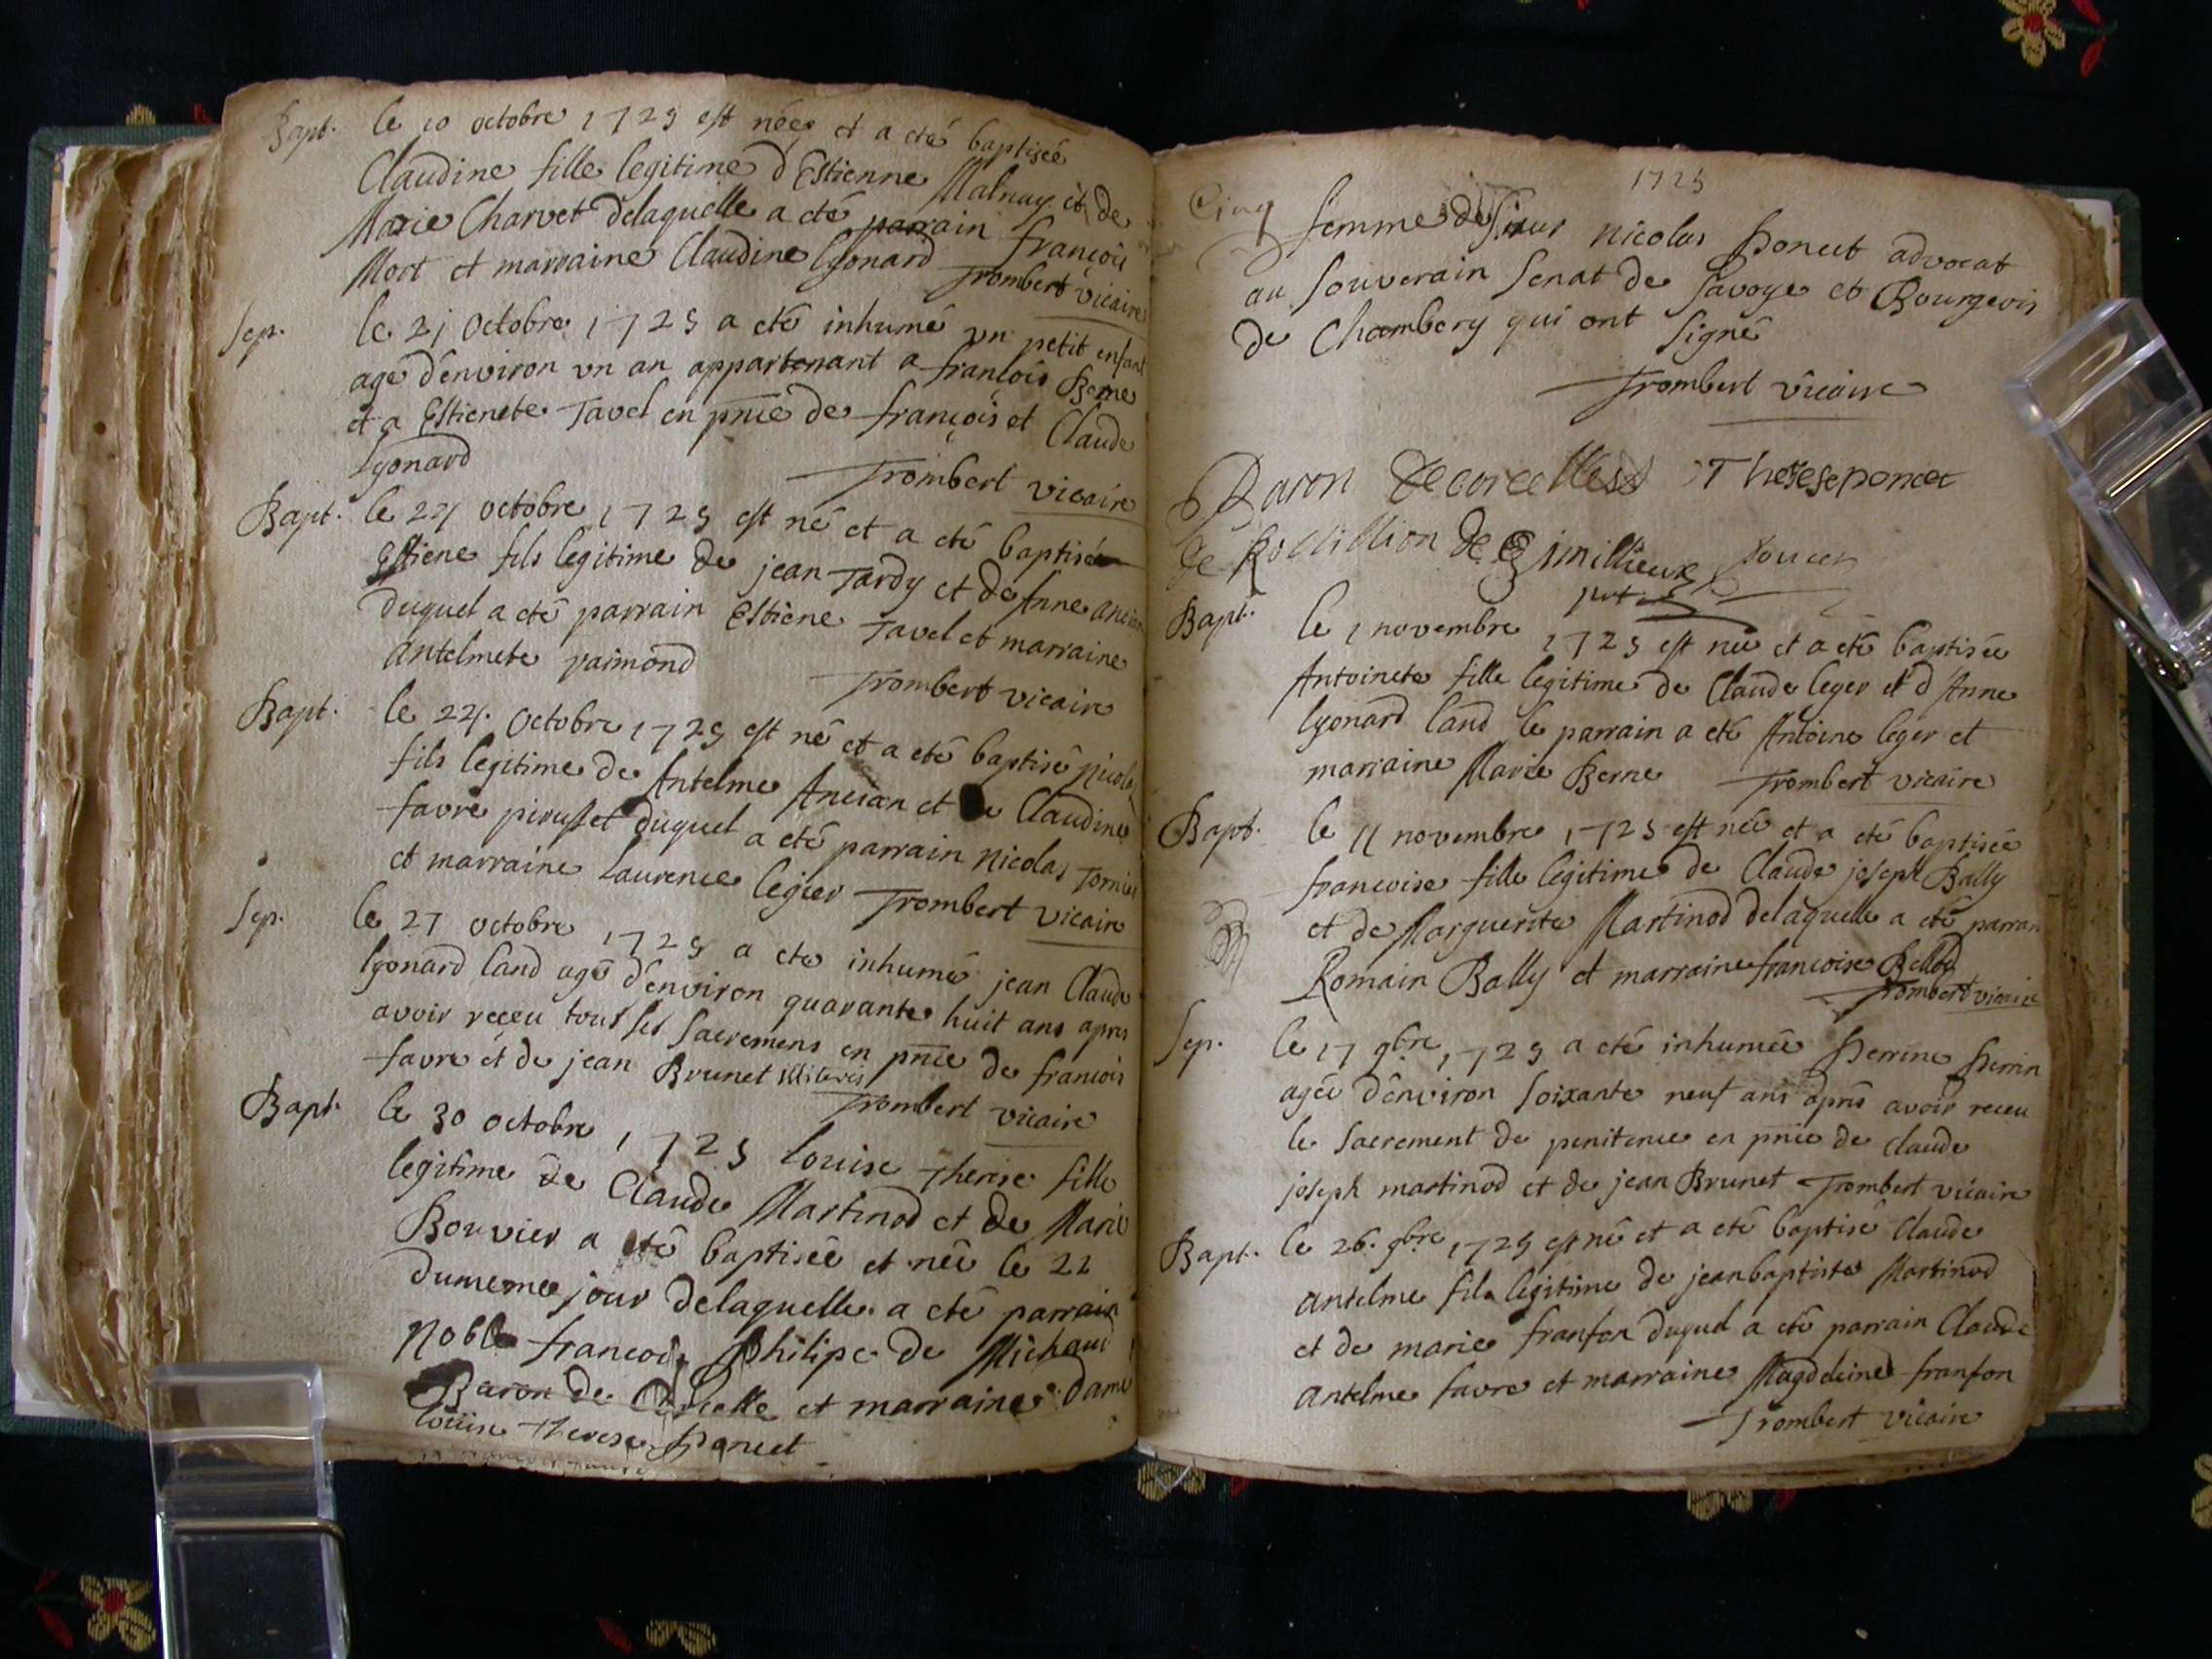 Bapt. le 10 octobre 1725 est née et a eté baptisée
Claudine fille legitime d'Estienne Malnuy et de
Marie Charvet delaquelle a eté parrain françois
Mort et marraine Claudine lyonard Trombert vicaire
Sep. le 21 octobre 1725 a eté inhumé un petit enfant
agé d'environ un an appartenant a françois Berne
et a Estienete Tavel en pnce de françois et Claude
lyonard
Trombert vicaire
Bapt. le 22 octobre 1725 est né et a eté baptisé
Estiene fils legitime de jean Tardy et de Anne ancian
duquel a eté parrain Estiene Tavel et marraine
antelmete raimond
Trombert vicaire
Bapt. le 24. octobre 1725 est né et a eté baptisé nicolas
fils legitime de Antelme Ancian et de Claudine
favre duquel a eté parrain nicolas
et marraine Laurence legier Trombert vicaire
Sep. le 27 octobre 1725 a eté inhumé jean Claude
lyonard land agé d'environ quarante huit ans apres
avoir receu tous ses sacremens en pnce de francois
favre et de jean Brunet illiteris
Trombert vicaire
Bapt. le 30 octobre 1725 louise Therese fille
legitime de Claude Martinod et de Marie
Bouvier a eté baptisée et née le 22
dumeme jour delaquelle a eté parrain
noble francois philipe de Michaud
Baron de Corcelle et marraine Dame
louise Therese Poncet
1725
Cinq
femme de Sieur nicolas Poncet advocat
au souverain senat de Savoye et Bourgeois
de Chambery qui ont signé
Trombert vicaire
Baron Decorcelles Therese poncet
Bapt. le 1 novembre 1725 est née et a eté baptisée
Antoinete fille legitime de Claude leger et d'Anne
lyonard land le parrain a eté Antoine leger et
marraine Marie Berne Trombert vicaire
Bapt. le 11 novembre 1725 est née et a eté baptisée
francoise fille legitime de Claude joseph Bally
et de Marguerite Martinod delaquelle a eté parrain
Romain Bally et marraine francoise Bellod
Trombert vicaire
Sep. le 17 9bre 1725 a eté inhumée Perrine Perrin
agée d'environ soixante neuf ans apres avoir receu
le sacrement de penitence en pnce de Claude
joseph martinod et de jean Brunet Trombert vicaire
Bapt. le 26. 9bre 1725 est né et a eté baptisé Claude
antelme fils legitime de jeanbaptiste Martinod
et de marie franfon duquel a eté parrain Claude
antelme favre et marraine Magdeleine franfon
Trombert vicaire